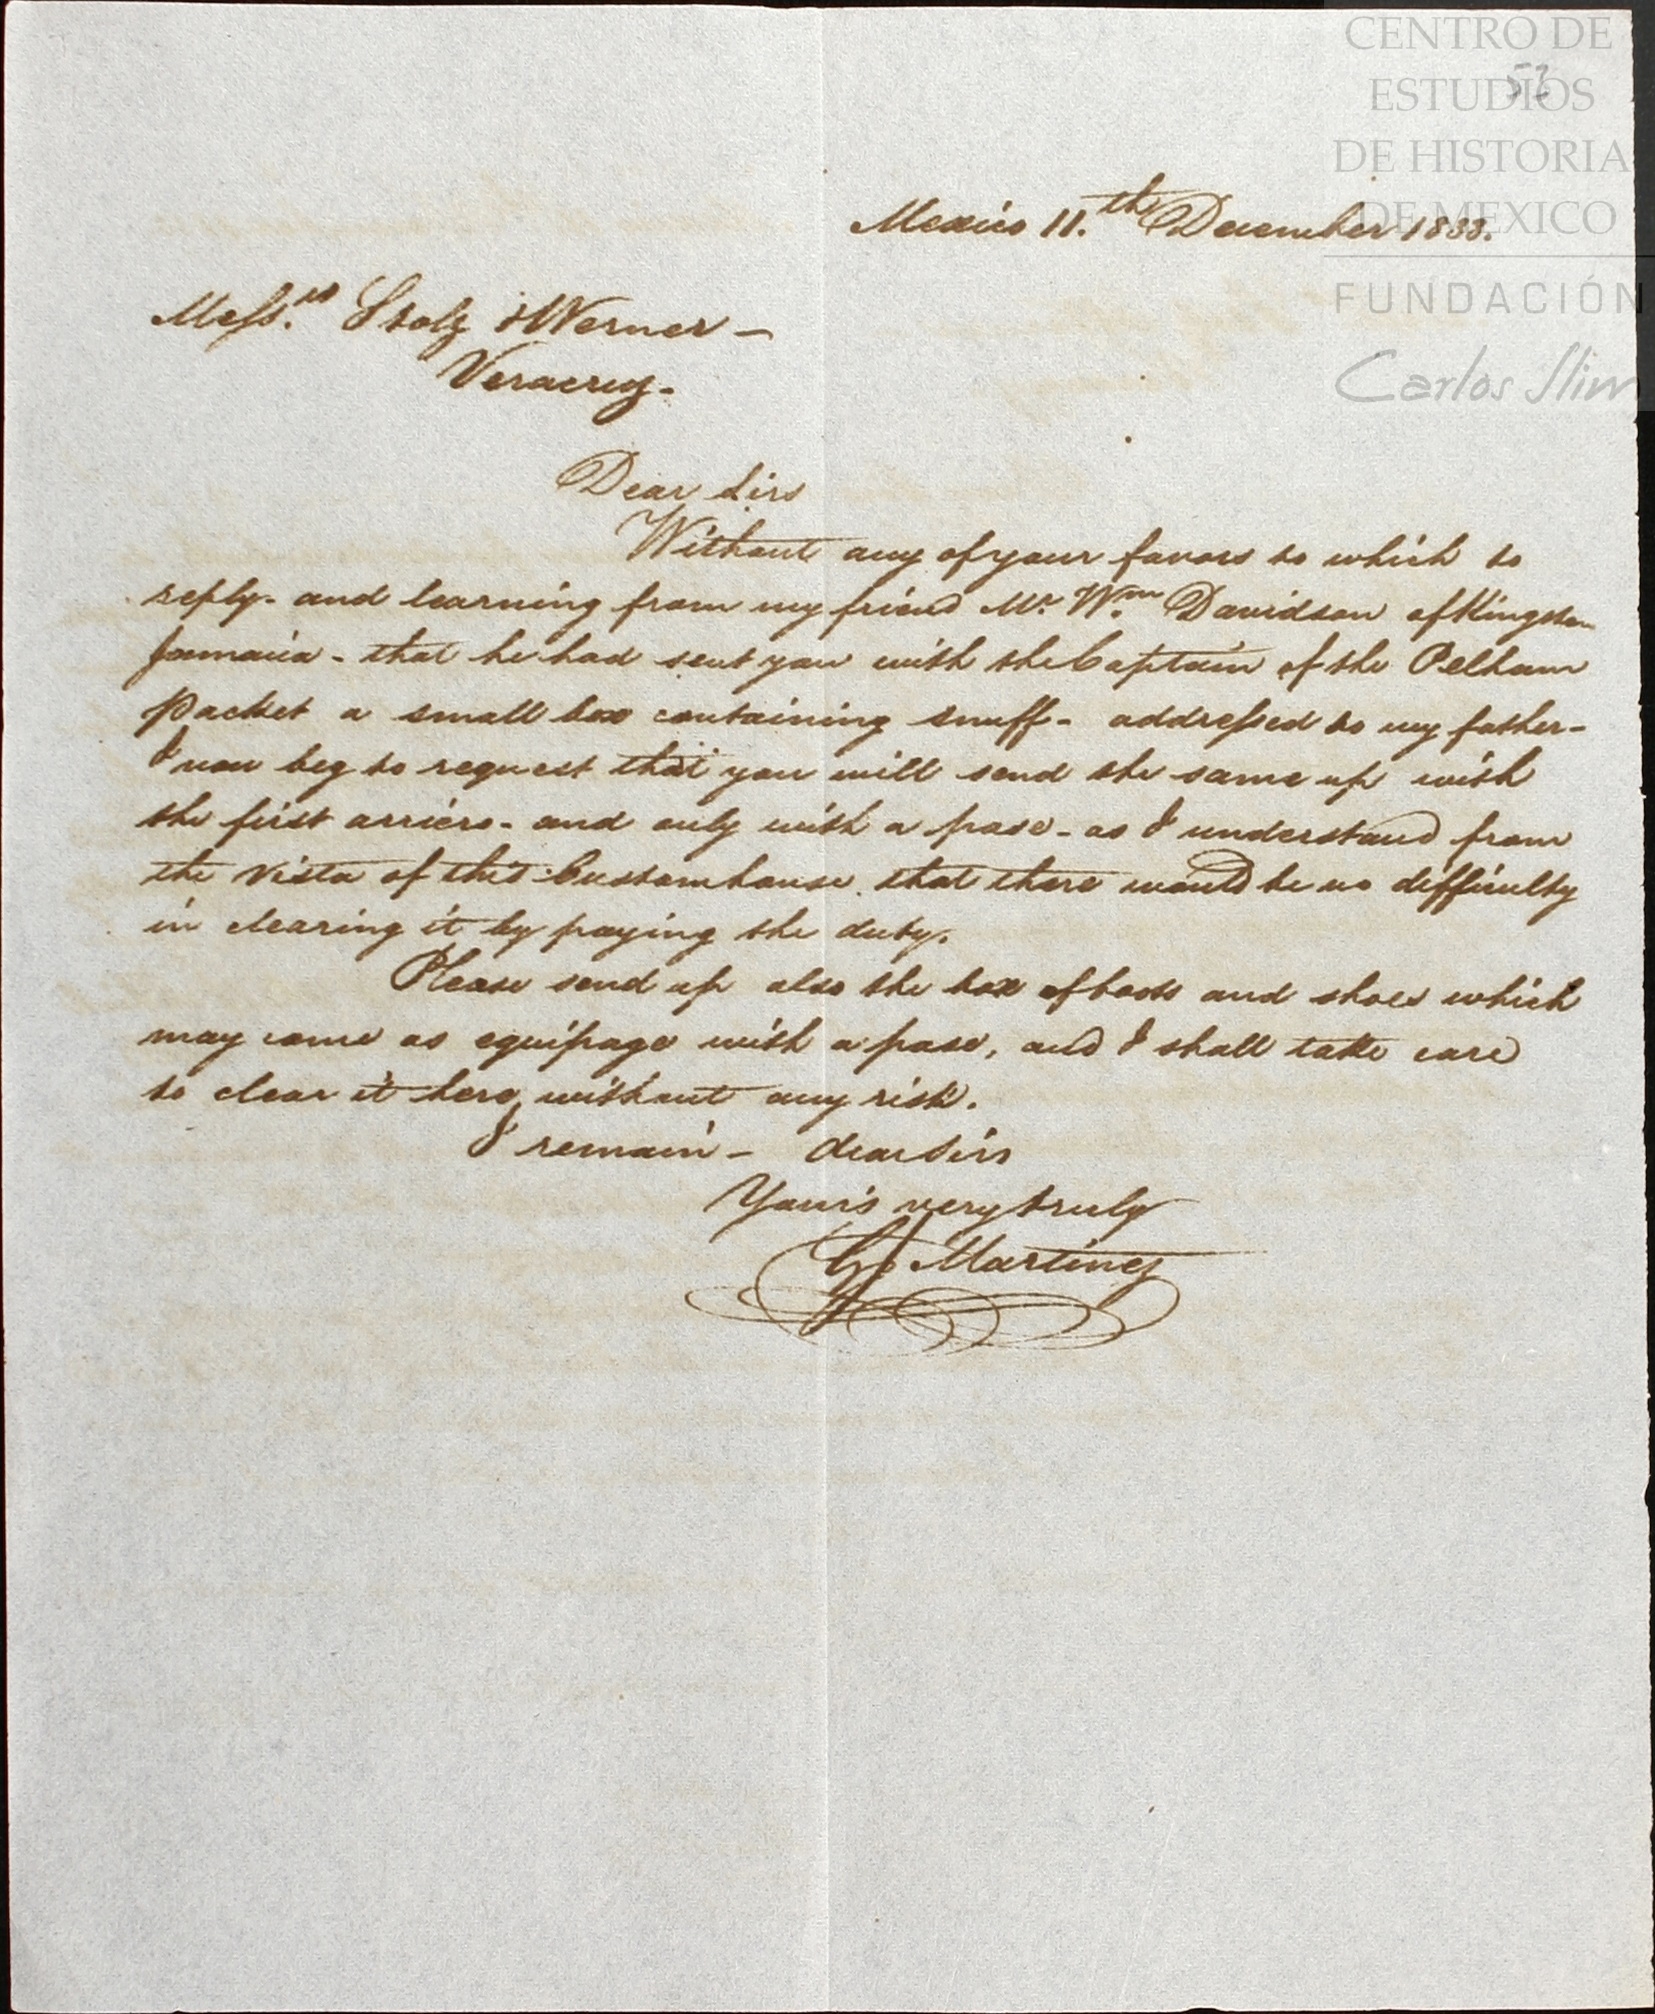 CENTRO DE
ESTUDIOS
DE HISTORIA
DE MEXICO
FUNDACIÓN
Carlos Slim
Mexico 11.th December 1838.
Mess.rs Stolz & Werner —
Veracruz.
Dear Sirs
Without any of your favors to which to
reply. and learning from my friend Mr. Wm. Davidson of Kingston
Jamaica - that he had sent you with the Captain of the Pelham
Packet a small box containing snuff - addressed to my father -
I now beg to request that you will send the same up with
the first arriero - and only with a pase - as I understand from
the Vista of this Customhouse that there would be no difficulty
in clearing it by paying the duty.
Please send up also the box of boots and shoes which
may come as equipage with a pase, and I shall take care
to clear it here, without any risk.
I remain - dear Sirs
Your's very truly
Martinez